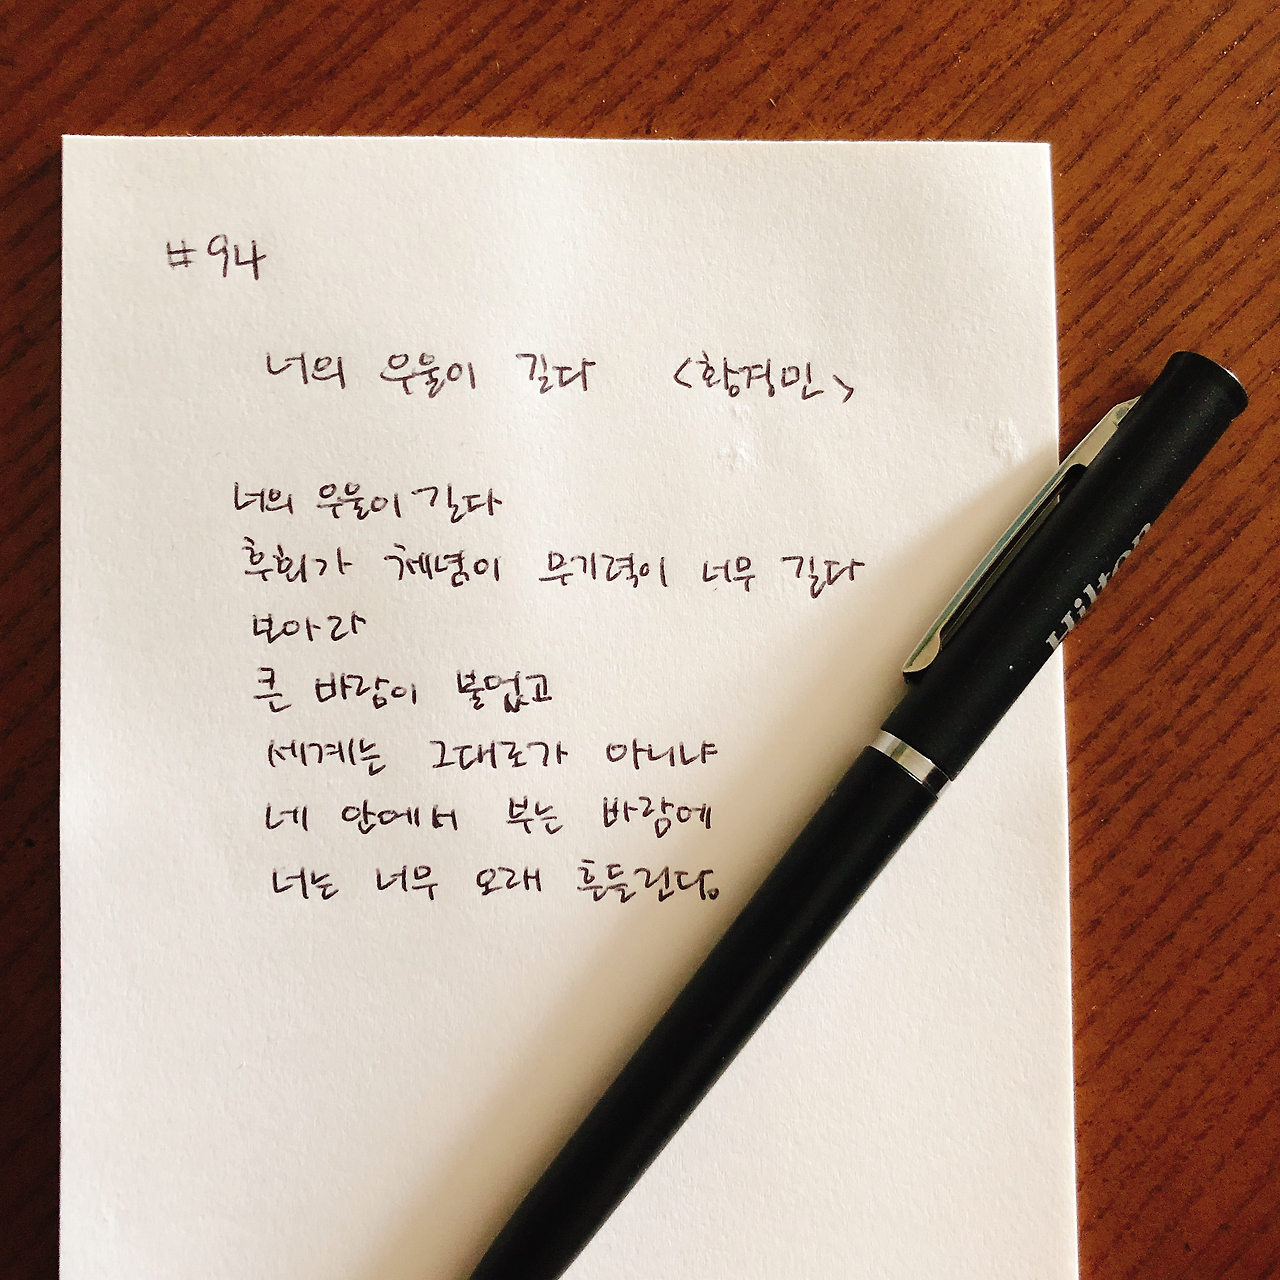 #94
너의 우울이 길다 <황경민>
너의 우울이 길다
후회가 체념이 무기력이 너무 길다
보아라
큰 바람이 불었고
세계는 그대로가 아니냐
네 안에서 부는 바람에
너는 너무 오래 흔들린다.
Hilton